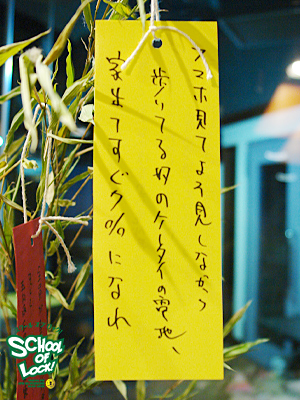 スマホ見てよそ見しながら
歩いてる奴のケータイの電池、
家出てすぐ7%になれ
SCHOOL
OF
LOCK!